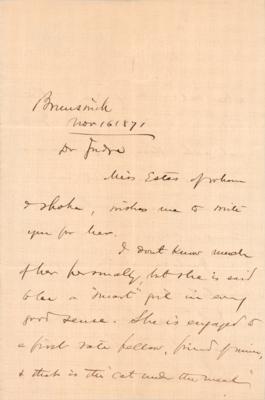 Brunswick
Nov 16 1871
Dr
Miss Estes of whom
I spoke, wishes me to write
you for her.
I don't know much
of her personally, but she is said
to be a "smart" girl in every
good sense. She is engaged to
a first rate fellow, friend of mine,
& that is the "cat under the meal"